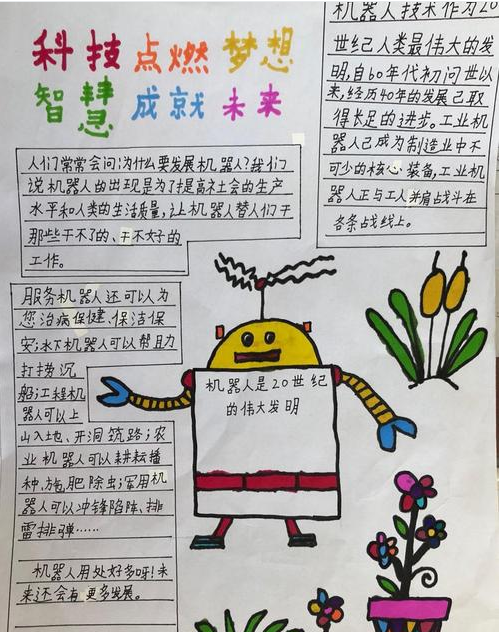 科技点燃梦想
智慧成就未来
机器人技术作为20
世纪人类最伟大的发
明,自60年代初问世以
来,经历40年的发展已取
得长足的进步。工业机
器人已成为制造业中不
可少的核心装备,工业机
器人正与工人并肩战斗在
各条战线上。
人们常常会问:为什么要发展机器人?我们
说机器人的出现是为了提高社会的生产
水平和人类的生活质量,让机器人替人们干
那些干不了的、干不好的
工作。
服务机器人还可以为
您治病保健、保洁保
安;水下机器人可以帮助
打捞沉
船;工程机
器人可以上
山入地、开洞筑路;农
业机器人可以耕耘播
种、施肥除虫;军用机
器人可以冲锋陷阵、排
雷排弹……
机器人用处好多呀!未
来还会有更多发展。
机器人是20世纪
的伟大发明